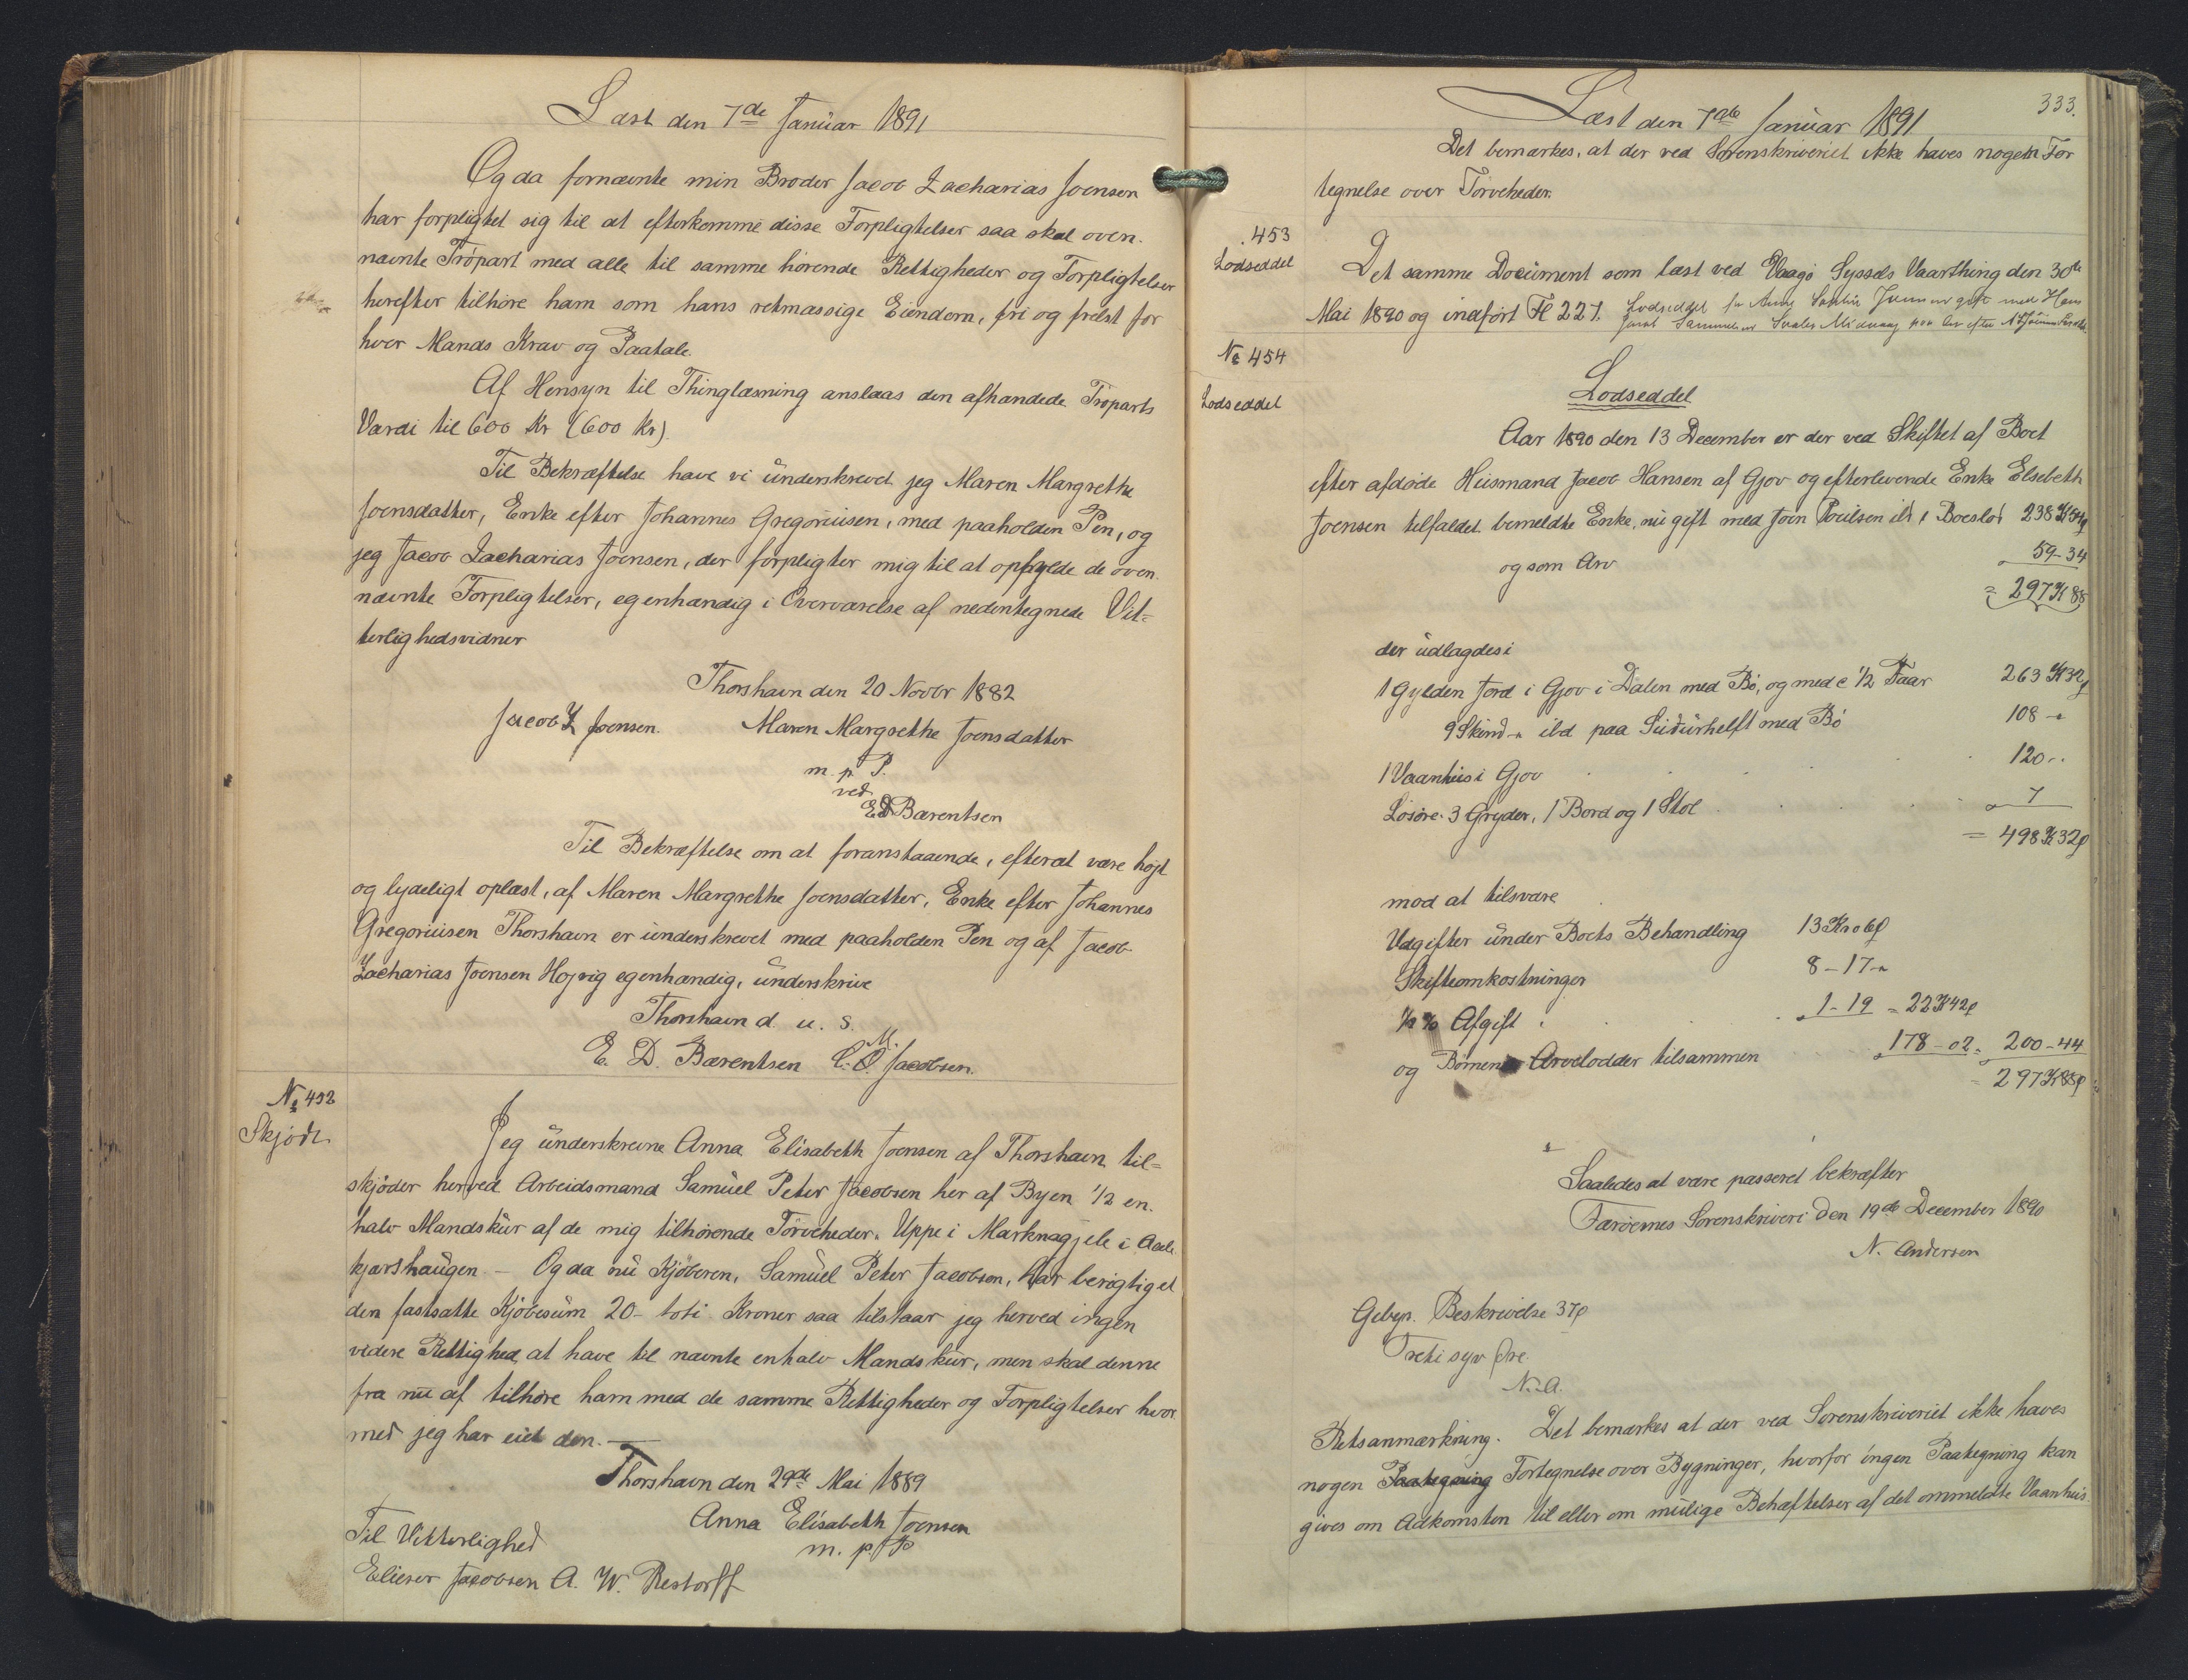 Læst den 7de Januar 1891
Og da fornævnte min Broder Jacob Zacharias Joensen
har forpligtet sig til at efterkomme disse Forpligtelser saa skal oven-
nævnte Tröpart med alle til samme hörende Rettigheder og Forpligtelser
herefter tilhöre ham som hans retmæssige Eiendom, fri og frelst for
hver Mands Krav og Paatale.
Af Hensyn til Thinglæsning anslaas den afhændede Tröparts
Værdi til 600 Kr (600 Kr).
Til Bekræftelse have vi underskrevet jeg Maren Margrethe
Joensdatter, Enke efter Johannes Gregoriusen, med paaholden Pen, og
jeg Jacob Zacharias Joensen, der forpligter mig til at opfylde de oven-
nævnte Forpligtelser, egenhændig i Overværelse af nedentegnede Vit-
terlighedsvidner
Thorshavn den 20 Novbr 1882
Jacob Z Joensen. Maren Margrethe Joensdatter
m. p. P.
ved
E D Bærentsen
Til Bekræftelse om at foranstaaende, efterat være højt
og lydeligt oplæst, af Maren Margrethe Joensdatter, Enke efter Johannes
Gregoriusen Thorshavn er underskrevet med paaholden Pen og af Jacob
Zacharias Joensen Hojvig egenhændig, underskrive
Thorshavn d. u. S.
E. D. Bærentsen C. O. M. Jacobsen.
No 452
Skjöde
Jeg underskrevne Anna Elisabeth Joensen af Thorshavn til-
skjöder herved Arbeidsmand Samuel Peter Jacobsen her af Byen 1/2 en
halv Mandskur af de mig tilhörende Törveheder. Uppe i Marknagjele i
kjærshaugen - Og da nu Kjöberen, Samuel Peter Jacobsen, har berigtiget
den fastsatte Kjöbesum 20- toti Kroner saa tilstaar jeg herved ingen
videre Rettighed at have til nævnte enhalv Mandskur, men skal denne
fra nu af tilhöre ham med de samme Rettigheder og Forpligtelser hvor
med jeg har eiet den.
Thorshavn den 29de Mai 1889
Anna Elisabeth Joensen
m. p. P
Til Vitterlighed
Elieser Jacobsen A. W. Restorff
333.
Læst den 7de Januar 1891
Det bemærkes, at der ved Sorenskriveriet ikke haves nogen For
tegnelse over Törveheder.
453
Lodseddel
Det samme Document som læst ved Vaagö Syssels Vaarthing den 30te
Mai 1890 og indfört Fl 227. Lodseddel for Anne Joensen gift med Hans
Jacob Samuelsen Midvaag paa Arv efter
No 454
Lodseddel
Lodseddel
Aar 1890 den 13 December er der ved Skiftet af Boet
efter afdöde Husmand Jacob Hansen af Gjov og efterlevende Enke Elsebeth
Joensen tilfaldet bemeldte Enke, nu gift med Join Poulsen ibd, i Boeslod 238 Kr 54
og som Arv 59-34
= 297 Kr 88
der udlagdes i
1 Gylden Jord i Gjov i Dalen med Bö, og med c 1/2 Faar 263 Kr 32
9 Skind - ibd paa Suðurhelft med Bö 108 -
1 Vaanhus i Gjov 120 -
Lösöre: 3 Gryder, 1 Bord og 1 Stol 7
= 498 Kr 32
mod at tilsvare
Udgifter under Boets Behandling 13 Kr 06
Skifteomkostninger 8 - 17 -
1/2 % Afgift 1 - 19 = 22 Kr 42
og Börnenes Arvelodder tilsammen 178 - 02 = 200 - 44
= 297 Kr 88
Saaledes at være passeret bekræfter
Færöernes Sorenskriveri den 19de December 1890
N. Andersen
Gebyr. Beskrivelse 37
Treti syv Öre
N. A.
Retsanmærkning. Det bemærkes at der ved Sorenskriveriet ikke haves
nogen Paategning Fortegnelse over Bygninger, hvorfor ingen Paategning kan
gives om Adkomsten til eller om mulige Behæftelser af det ommeldte Vaanhus.